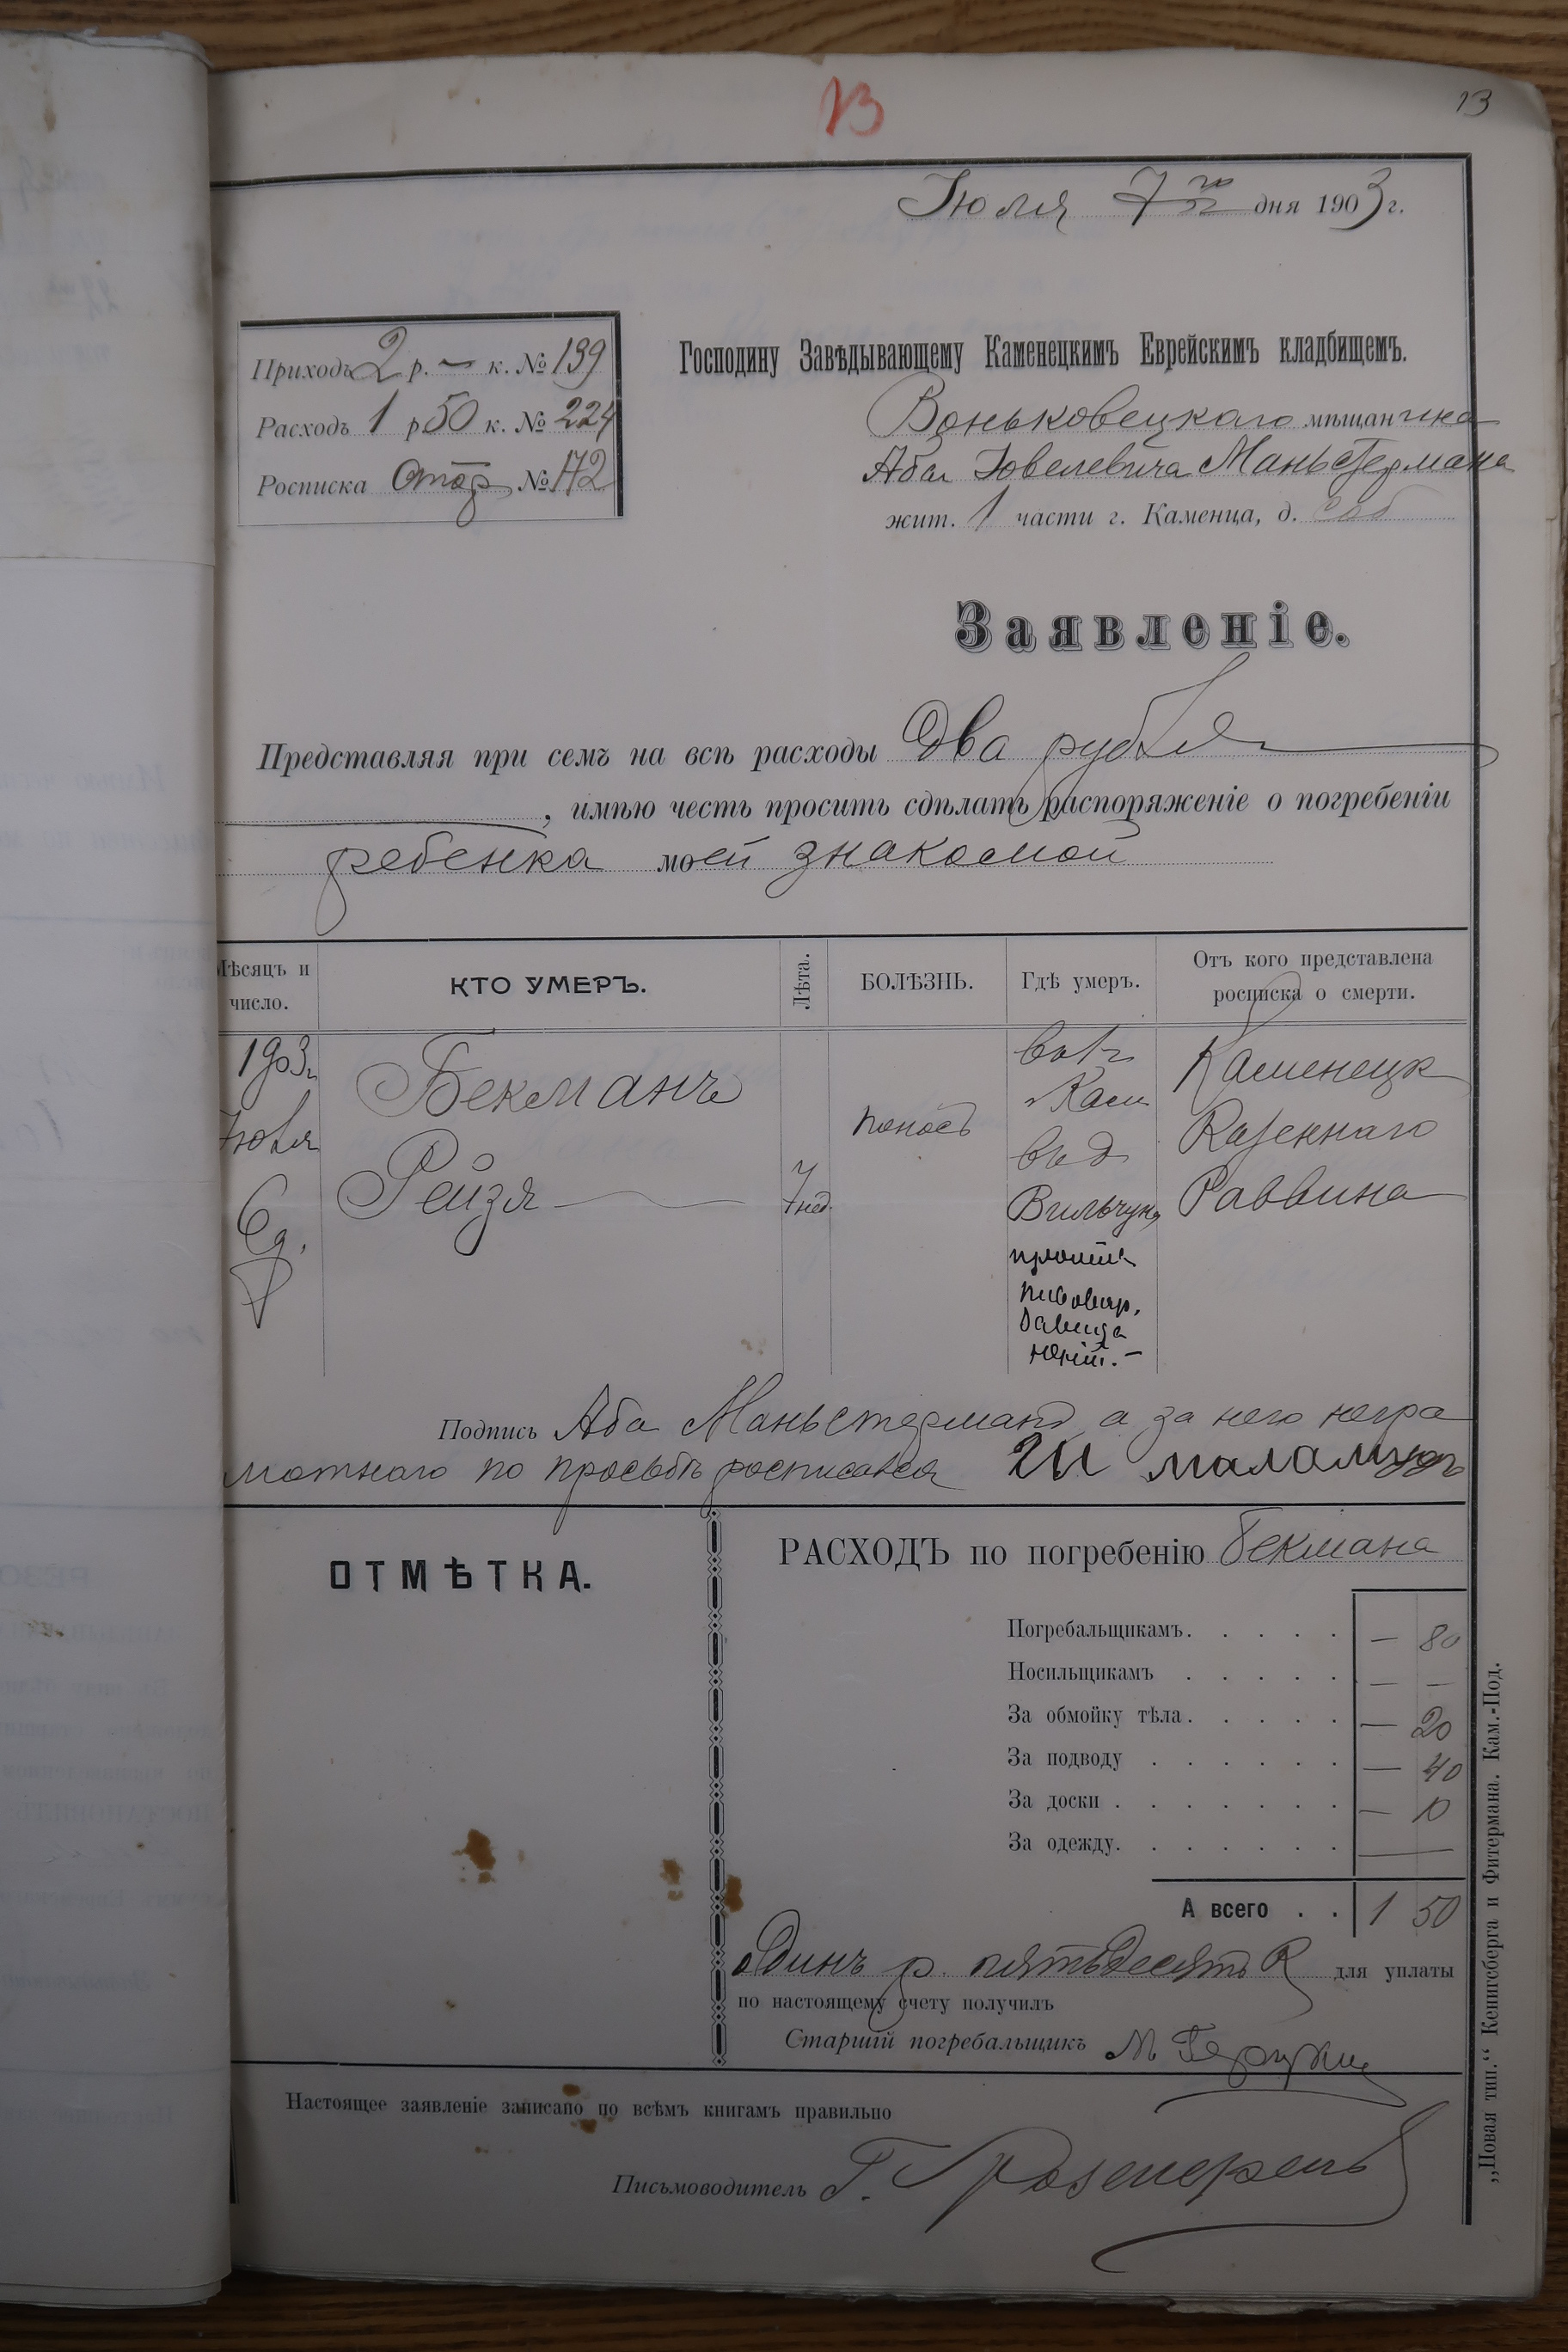 13
13
Іюля 7го дня 1903 г.
Приходъ 2 р. — к. № 139
Расходъ 1 р 50 к. № 224
Росписка № 172
Господину Завѣдывающему Каменецкимъ Еврейскимъ кладбищемъ.
Воньковецкаго мѣщанина
Абы Іовелевича Маньстермана
жит. 1 части г. Каменца, д. соб
Заявленіе.
Представляя при семъ на всѣ расходы Два рубля
, имѣю честь просить сдѣлать распоряженіе о погребеніи
ребенка моей знакомой
Мѣсяцъ и число.
КТО УМЕРЪ.
Лѣта.
БОЛѢЗНЬ.
Гдѣ умеръ.
Отъ кого представлена росписка о смерти.
1903г
Іюля
6д.
Бекманъ
Рейзя
7 нед.
поносъ
въ г
Кам
въ д
Вильчун
пивовар.
Давида
Каменецк
Казеннаго
Раввина
Подпись Аба Маньстерманъ, а за него негра
мотнаго по просьбѣ росписался маламудъ
ОТМѢТКА.
РАСХОДЪ по погребенію Бекмана
Погребальщикамъ. . . . . — 80
Носильщикамъ . . . . . — —
За обмойку тѣла. . . . . — 20
За подводу . . . . . . — 40
За доски . . . . . . . — 10
За одежду. . . . . . . —
А всего . . 1 50
Одинъ р. пятьдесятъ к для уплаты
по настоящему счету получилъ
Старшій погребальщикъ М
Настоящее заявленіе записано по всѣмъ книгамъ правильно
Письмоводитель Г.
„Новая тип.“ Кенигсберга и Фитермана. Кам.-Под.